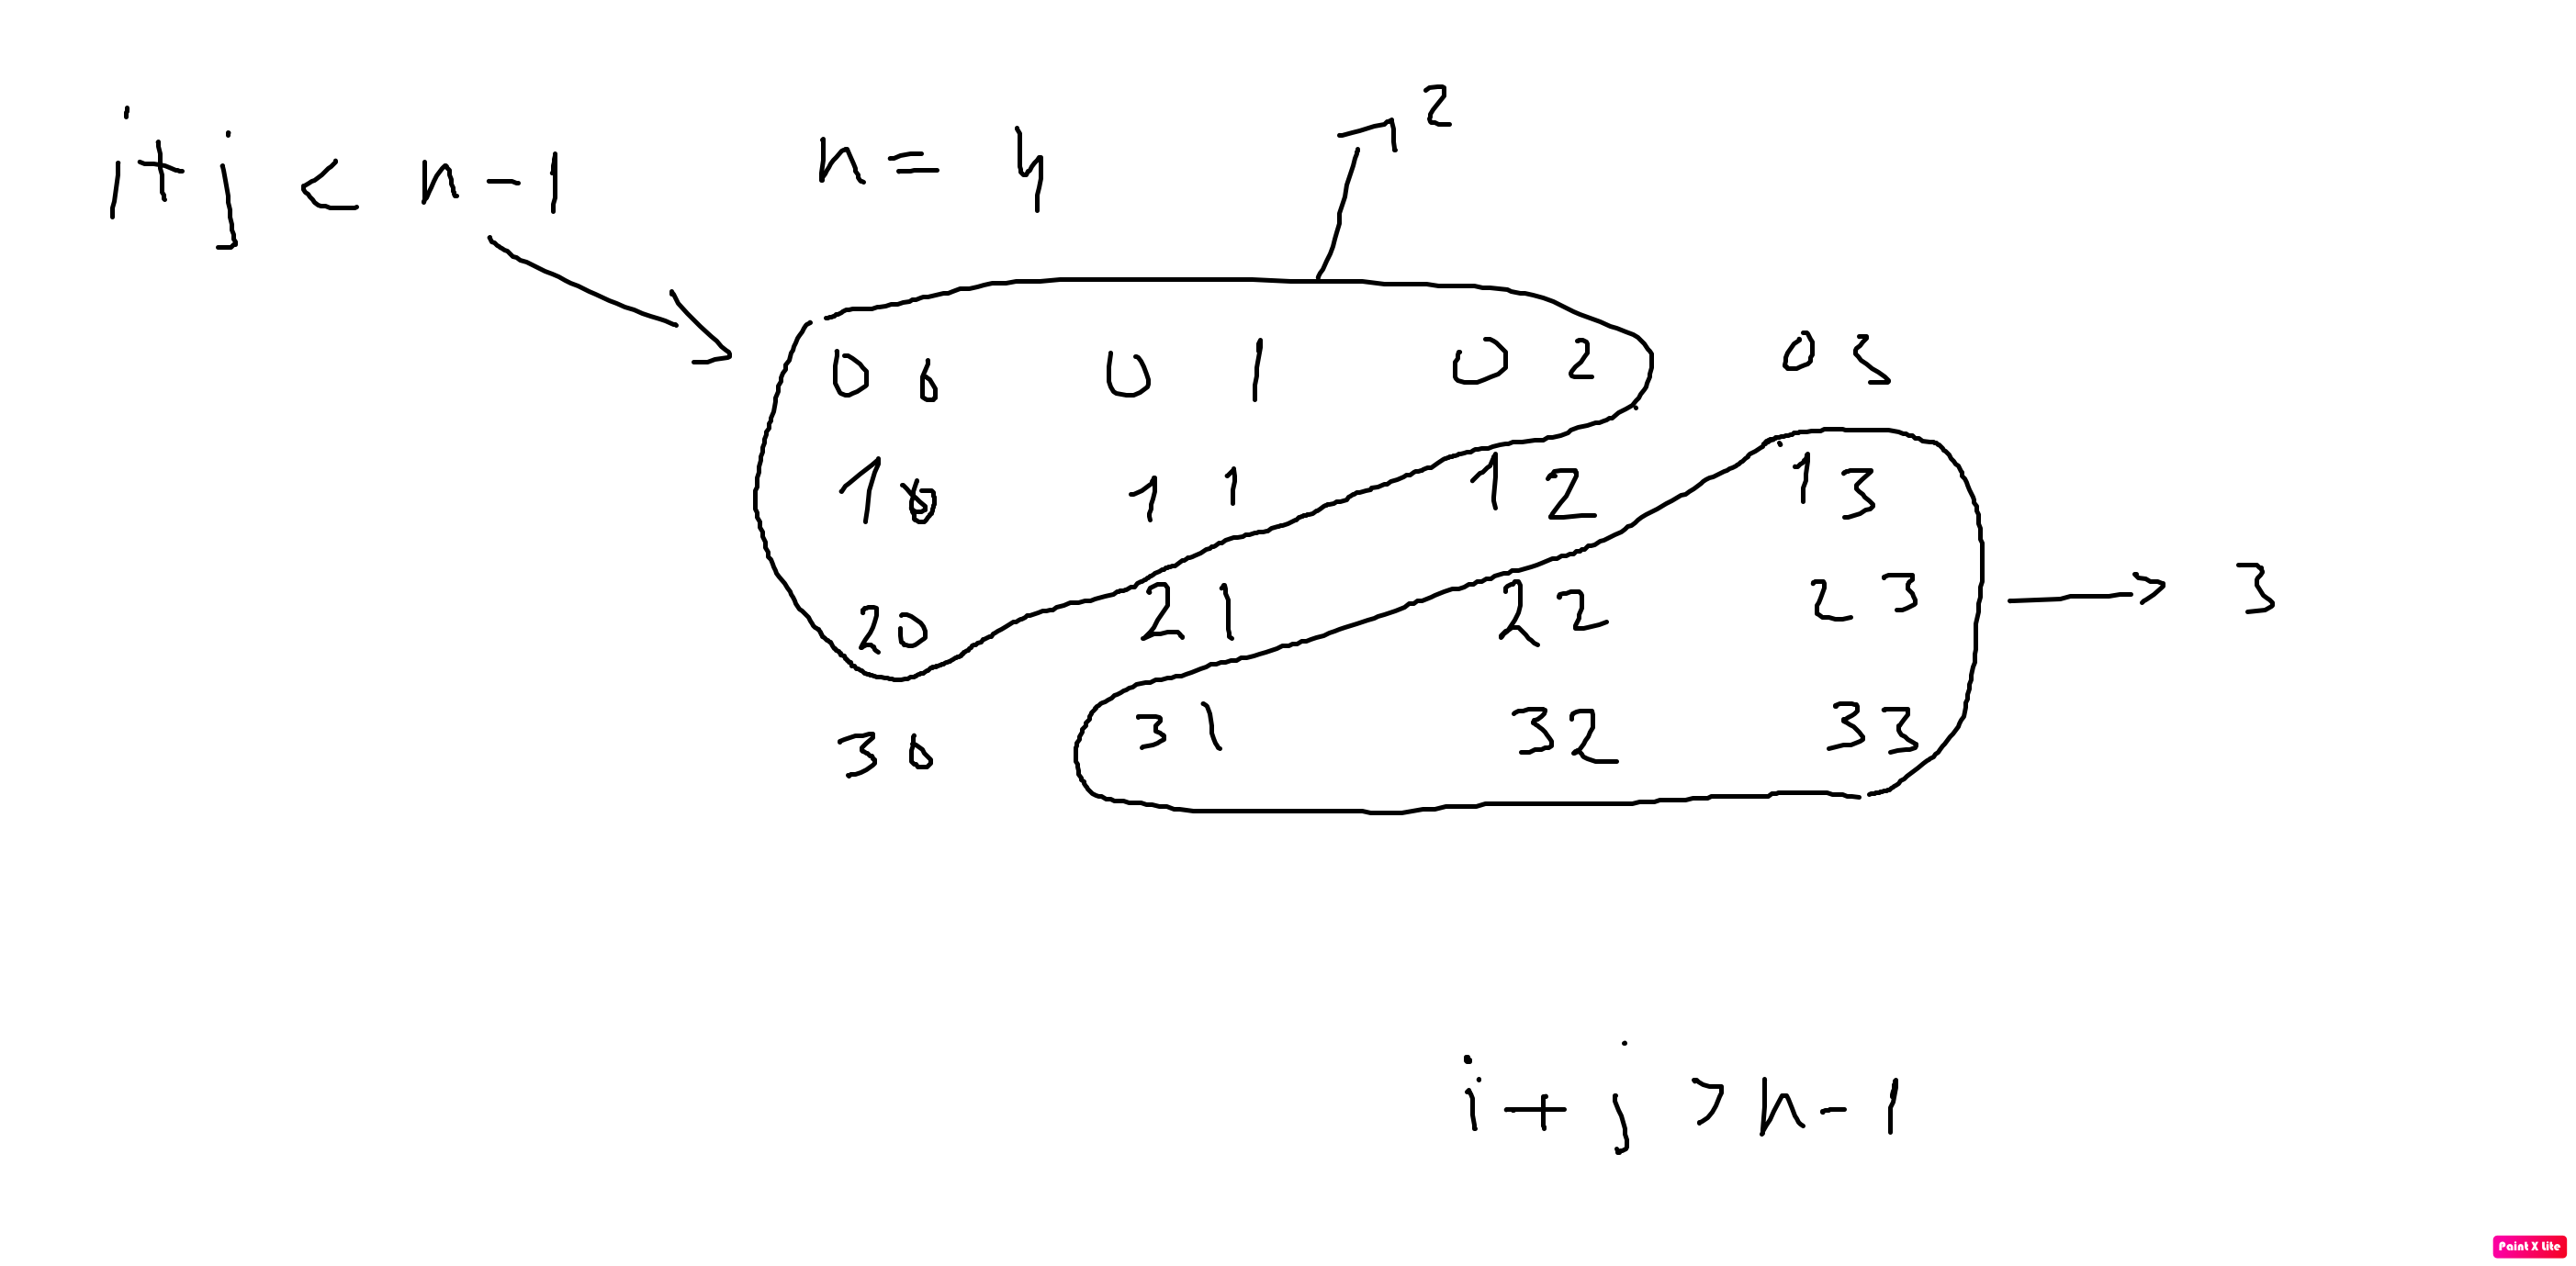 i+j < n-1
n = 4
2
00 01 02 03
10 11 12 13
20 21 22 23
3
30 31 32 33
i+j > n-1
Paint X Lite